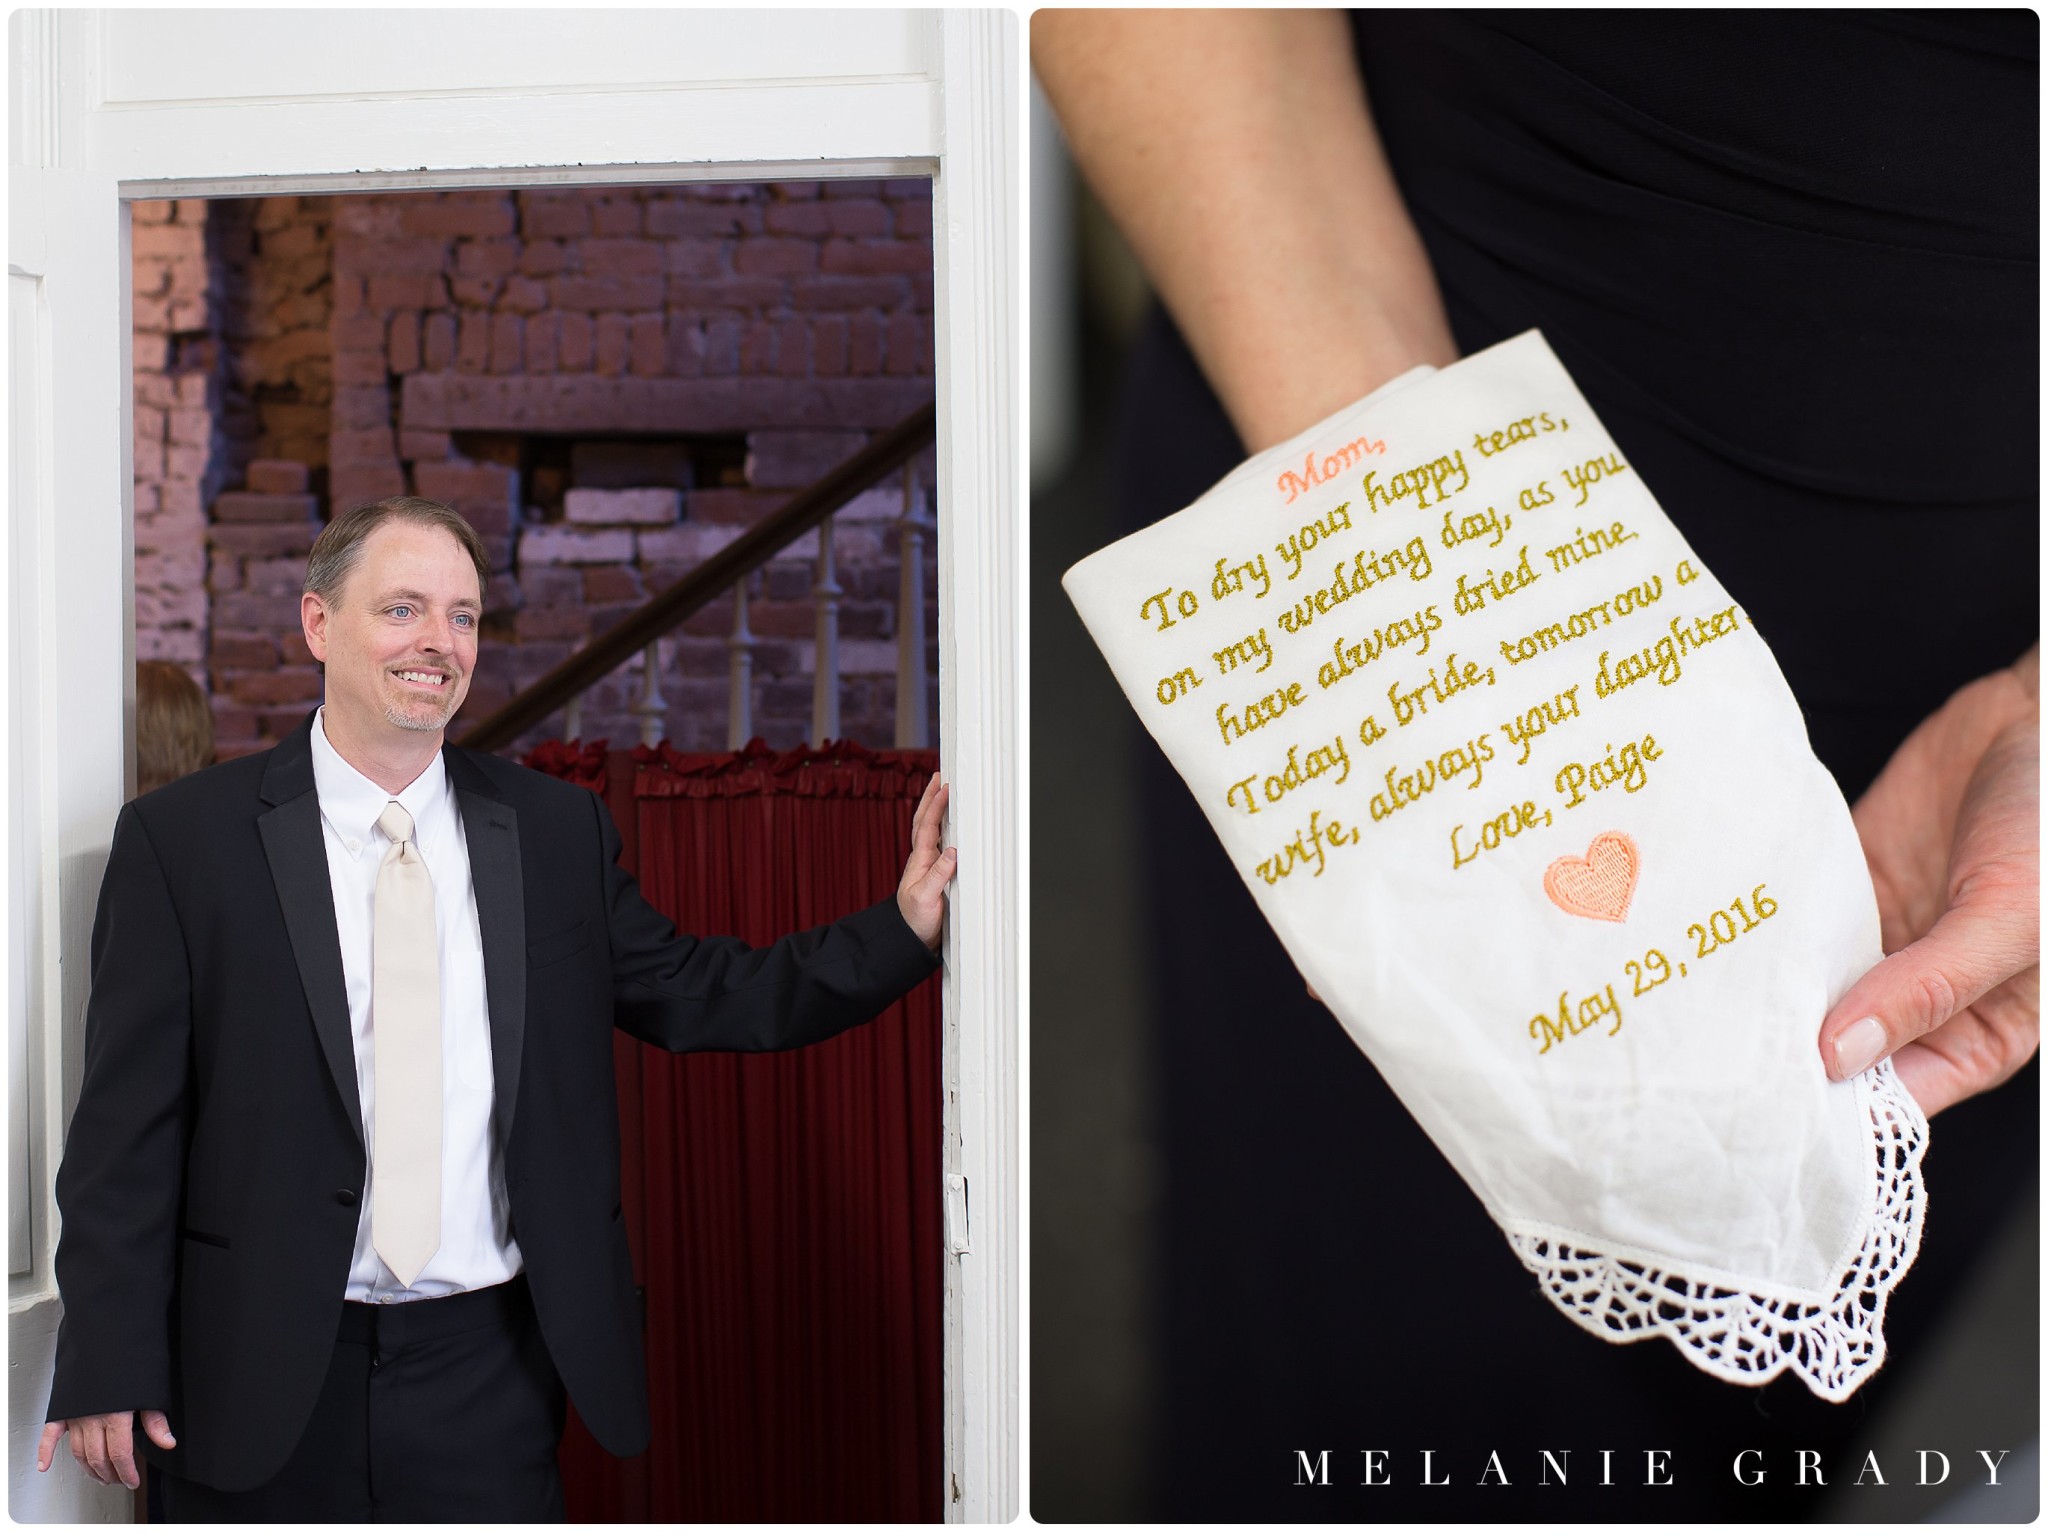 Mom,
To dry your happy tears,
on my wedding day, as you
have always dried mine.
Today a bride, tomorrow a
wife, always your daughter.
Love, Paige
May 29, 2016
MELANIE GRADY